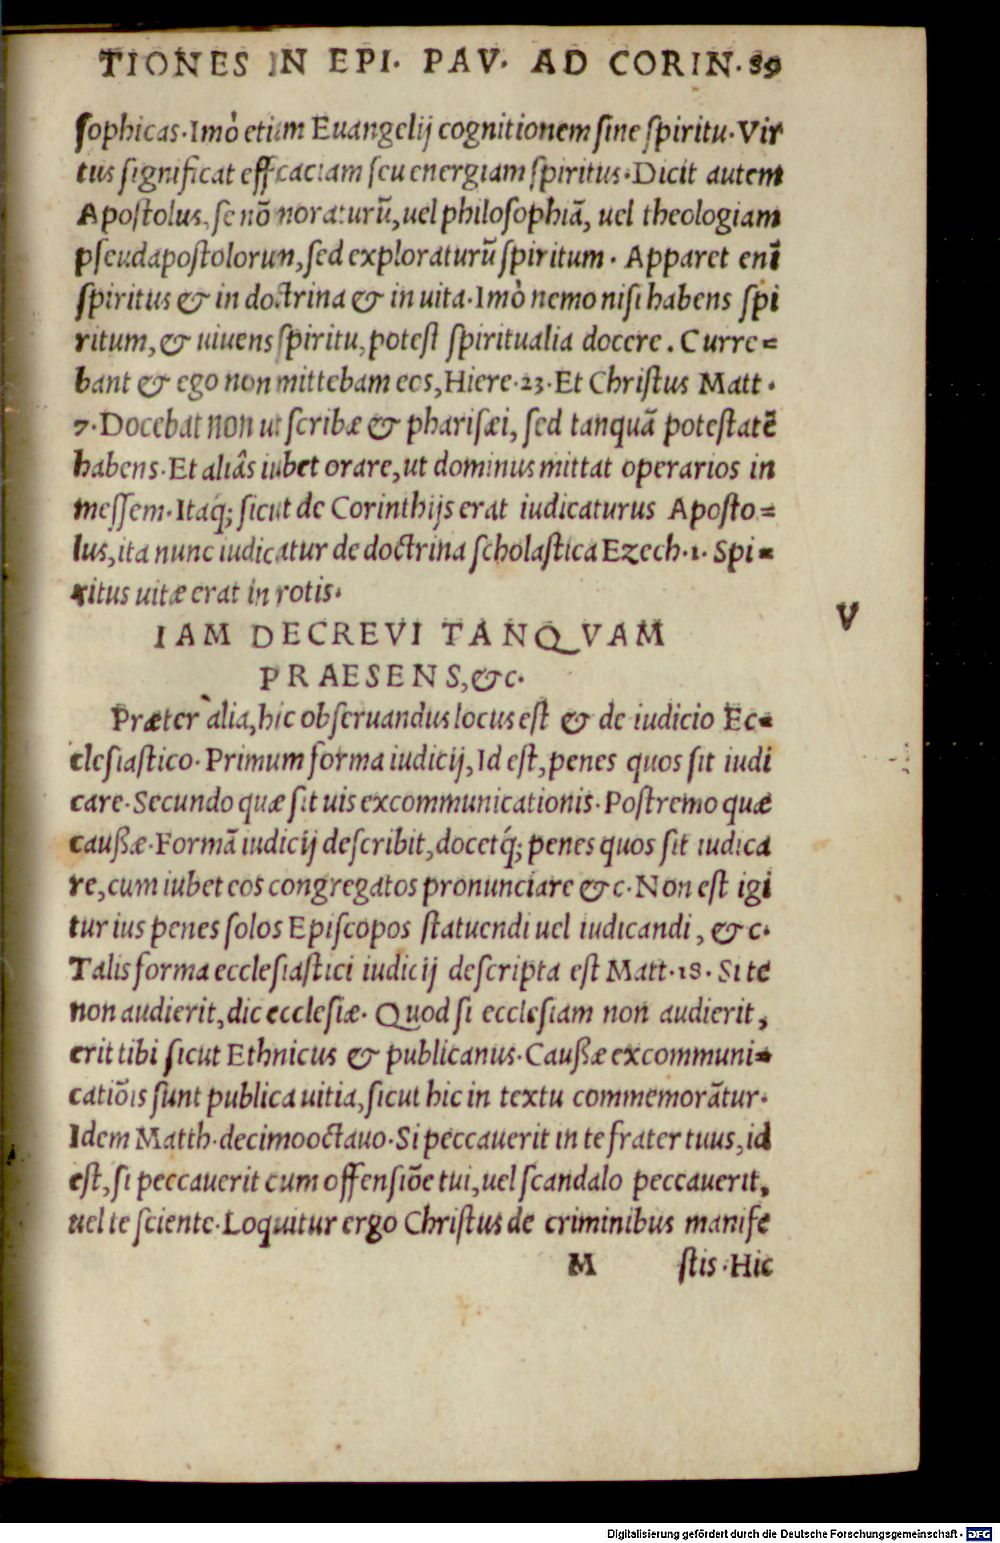 TIONES IN EPI. PAV. AD CORIN. 89
sophicas. Imò etiam Euangelij cognitionem sine spiritu. Vir
tus significat efficaciam seu energiam spiritus. Dicit autem
Apostolus, se nõ noraturũ, uel philosophiã, uel theologiam
pseudapostolorum, sed exploraturũ spiritum. Apparet enĩ
spiritus & in doctrina & in uita. Imò nemo nisi habens spi
ritum, & uiuens spiritu, potest spiritualia docere. Curre=
bant & ego non mittebam eos, Hiere. 23. Et Christus Matt.
7. Docebat non ut scribæ & pharisæi, sed tanquã potestatẽ
habens. Et aliâs iubet orare, ut dominus mittat operarios in
messem. Itaq; sicut de Corinthijs erat iudicaturus Aposto=
lus, ita nunc iudicatur de doctrina scholastica Ezech. 1. Spi=
ritus uitæ erat in rotis.
V
IAM DECREVI TANQVAM
PRAESENS, &c.
Præter alia, hic obseruandus locus est & de iudicio Ec=
clesiastico. Primum forma iudicij, Id est, penes quos sit iudi
care. Secundo quæ sit uis excommunicationis. Postremo quæ
caußæ. Formã iudicij describit, docetq́; penes quos sit iudica
re, cum iubet eos congregatos pronunciare &c. Non est igi
tur ius penes solos Episcopos statuendi uel iudicandi, &c.
Talis forma ecclesiastici iudicij descripta est Matt. 18. Si te
non audierit, dic ecclesiæ. Quod si ecclesiam non audierit,
erit tibi sicut Ethnicus & publicanus. Caußæ excommuni=
catiõis sunt publica uitia, sicut hic in textu commemorãtur.
Idem Matth. decimooctauo. Si peccauerit in te frater tuus, id
est, si peccauerit cum offensiõe tui, uel scandalo peccauerit,
uel te sciente. Loquitur ergo Christus de criminibus manife
M stis. Hic
Digitalisierung gefördert durch die Deutsche Forschungsgemeinschaft - DFG